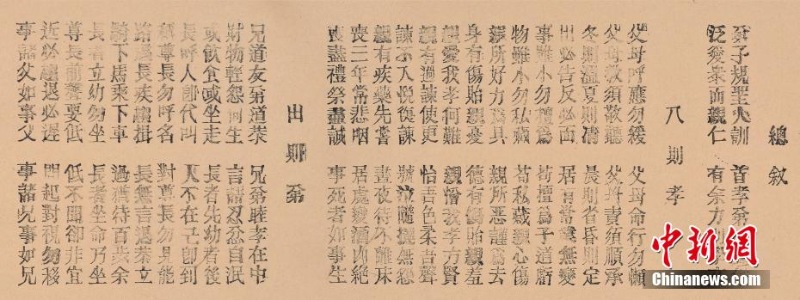 總叙
弟子規聖人訓 首孝弟
泛愛眾而親仁 有余力則
入則孝
父母呼應勿緩 父母命行勿懶
父母教須敬聽 父母責須順承
冬則溫夏則凊 晨則省昏則定
出必告反必面 居有常業無變
事雖小勿擅為 苟擅為子道虧
物雖小勿私藏 苟私藏親心傷
親所好力為具 親所惡謹為去
身有傷貽親憂 德有傷貽親羞
親愛我孝何難 親憎我孝方賢
親有過諫使更 怡吾色柔吾聲
諫不入悅復諫 號泣隨撻無怨
親有疾藥先嘗 晝夜侍不離床
喪三年常悲咽 居處變酒肉絕
喪盡禮祭盡誠 事死者如事生
出則弟
兄道友弟道恭 兄弟睦孝在中
財物輕怨何生 言語忍忿自泯
或飲食或坐走 長者先幼者後
長呼人即代叫 人不在己即到
稱尊長勿呼名 對尊長勿見能
路遇長疾趨揖 長無言退恭立
騎下馬乘下車 過猶待百步余
長者立幼勿坐 長者坐命乃坐
尊長前聲要低 低不聞卻非宜
近必趨退必遲 問起對視勿移
事諸父如事父 事諸兄如事兄
中新網
Chinanews.com